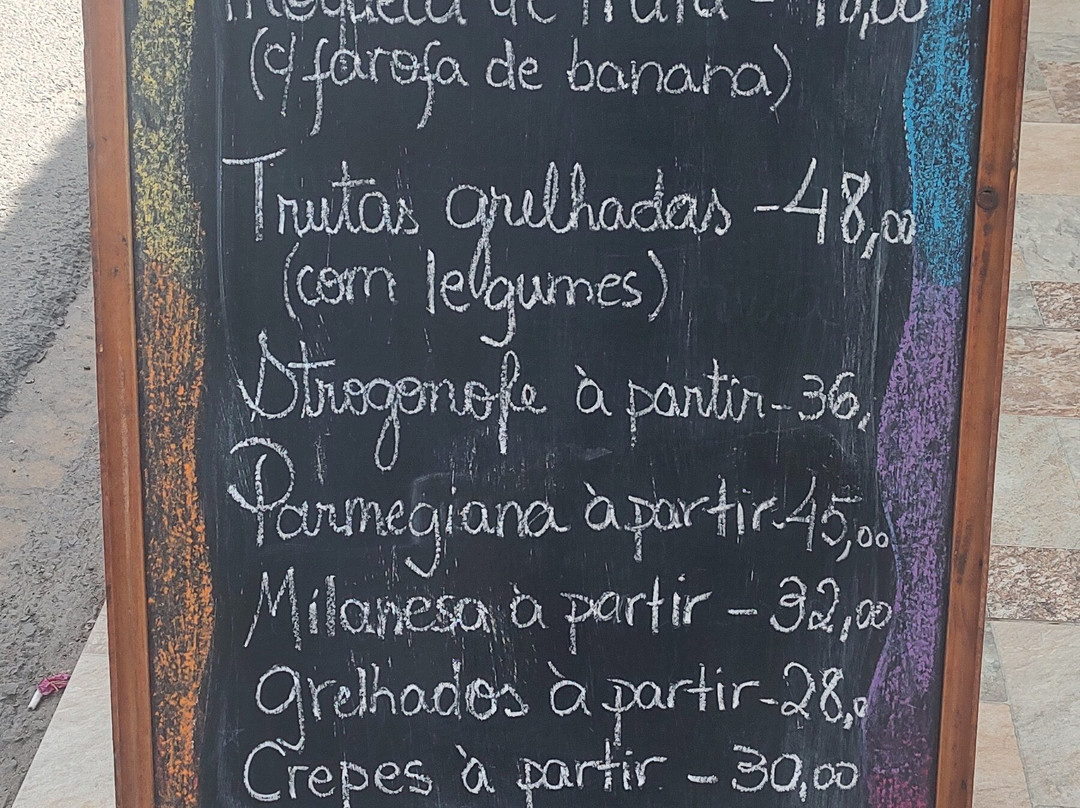 Moqueca de Truta -
(c/ farofa de banana)
Trutas grelhadas - 48,00
(com legumes)
Strogonofe à partir - 36,
Parmegiana à partir - 45,00
Milanesa à partir - 32,00
Grelhados à partir - 28,0
Crepes à partir - 30,00